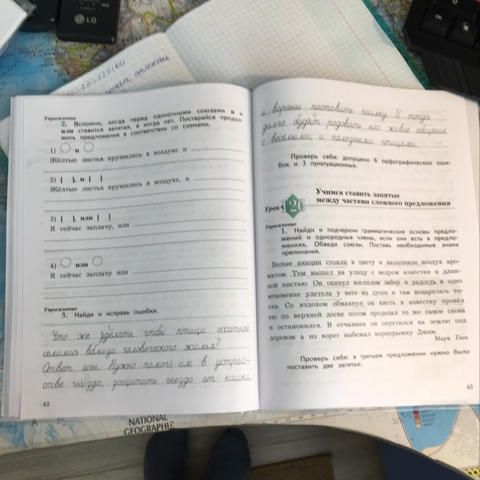 LG
Упражнение
2. Вспомни, когда перед одиночными союзами и и
или ставится запятая, а когда нет. Постарайся продол-
жить предложения в соответствии со схемами.
1) и
Жёлтые листья кружились в воздухе и
2) [ ], и [ ]
Жёлтые листья кружились в воздухе, и
3) [ ], или [ ]
Я сейчас заплачу, или
4) или
Я сейчас заплачу или
Упражнение
3. Найди и исправь ошибки.
Что же зделать, чтобы птицы охотнее
селились вблизи человеческого жилья?
Ответ ясен. Нужно помогч им в устрой-
стве гнёзда, защитить гнездо от кошки
42
NATIONAL
GEOGRAPHIC
и вароны, поставить паилку. И тогда
долго будет радовать нас живое общение
с весёлыми, и полезными птицами.
Проверь себя: допущено 6 орфографических оши-
бок и 3 пунктуационных.
Урок 26
Учимся ставить запятые
между частями сложного предложения
Упражнение
1. Найди и подчеркни грамматические основы предло-
жений и однородные члены, если они есть в предло-
жениях. Обведи союзы. Поставь необходимые знаки
препинания.
Белые акации стояли в цвету и наполняли воздух аро-
матом. Том вышел на улицу с ведром извёстки и длин-
ной кистью. Он окинул взглядом забор и радость в одно
мгновение улетела у него из души и там воцарилась то-
ска. Со вздохом обмакнул он кисть в извёстку провёл
ею по верхней доске потом проделал то же самое снова
и остановился. В отчаянии он опустился на землю под
деревом а из ворот выбежал вприпрыжку Джим.
Марк Твен
Проверь себя: в третьем предложении нужно было
поставить две запятые.
43